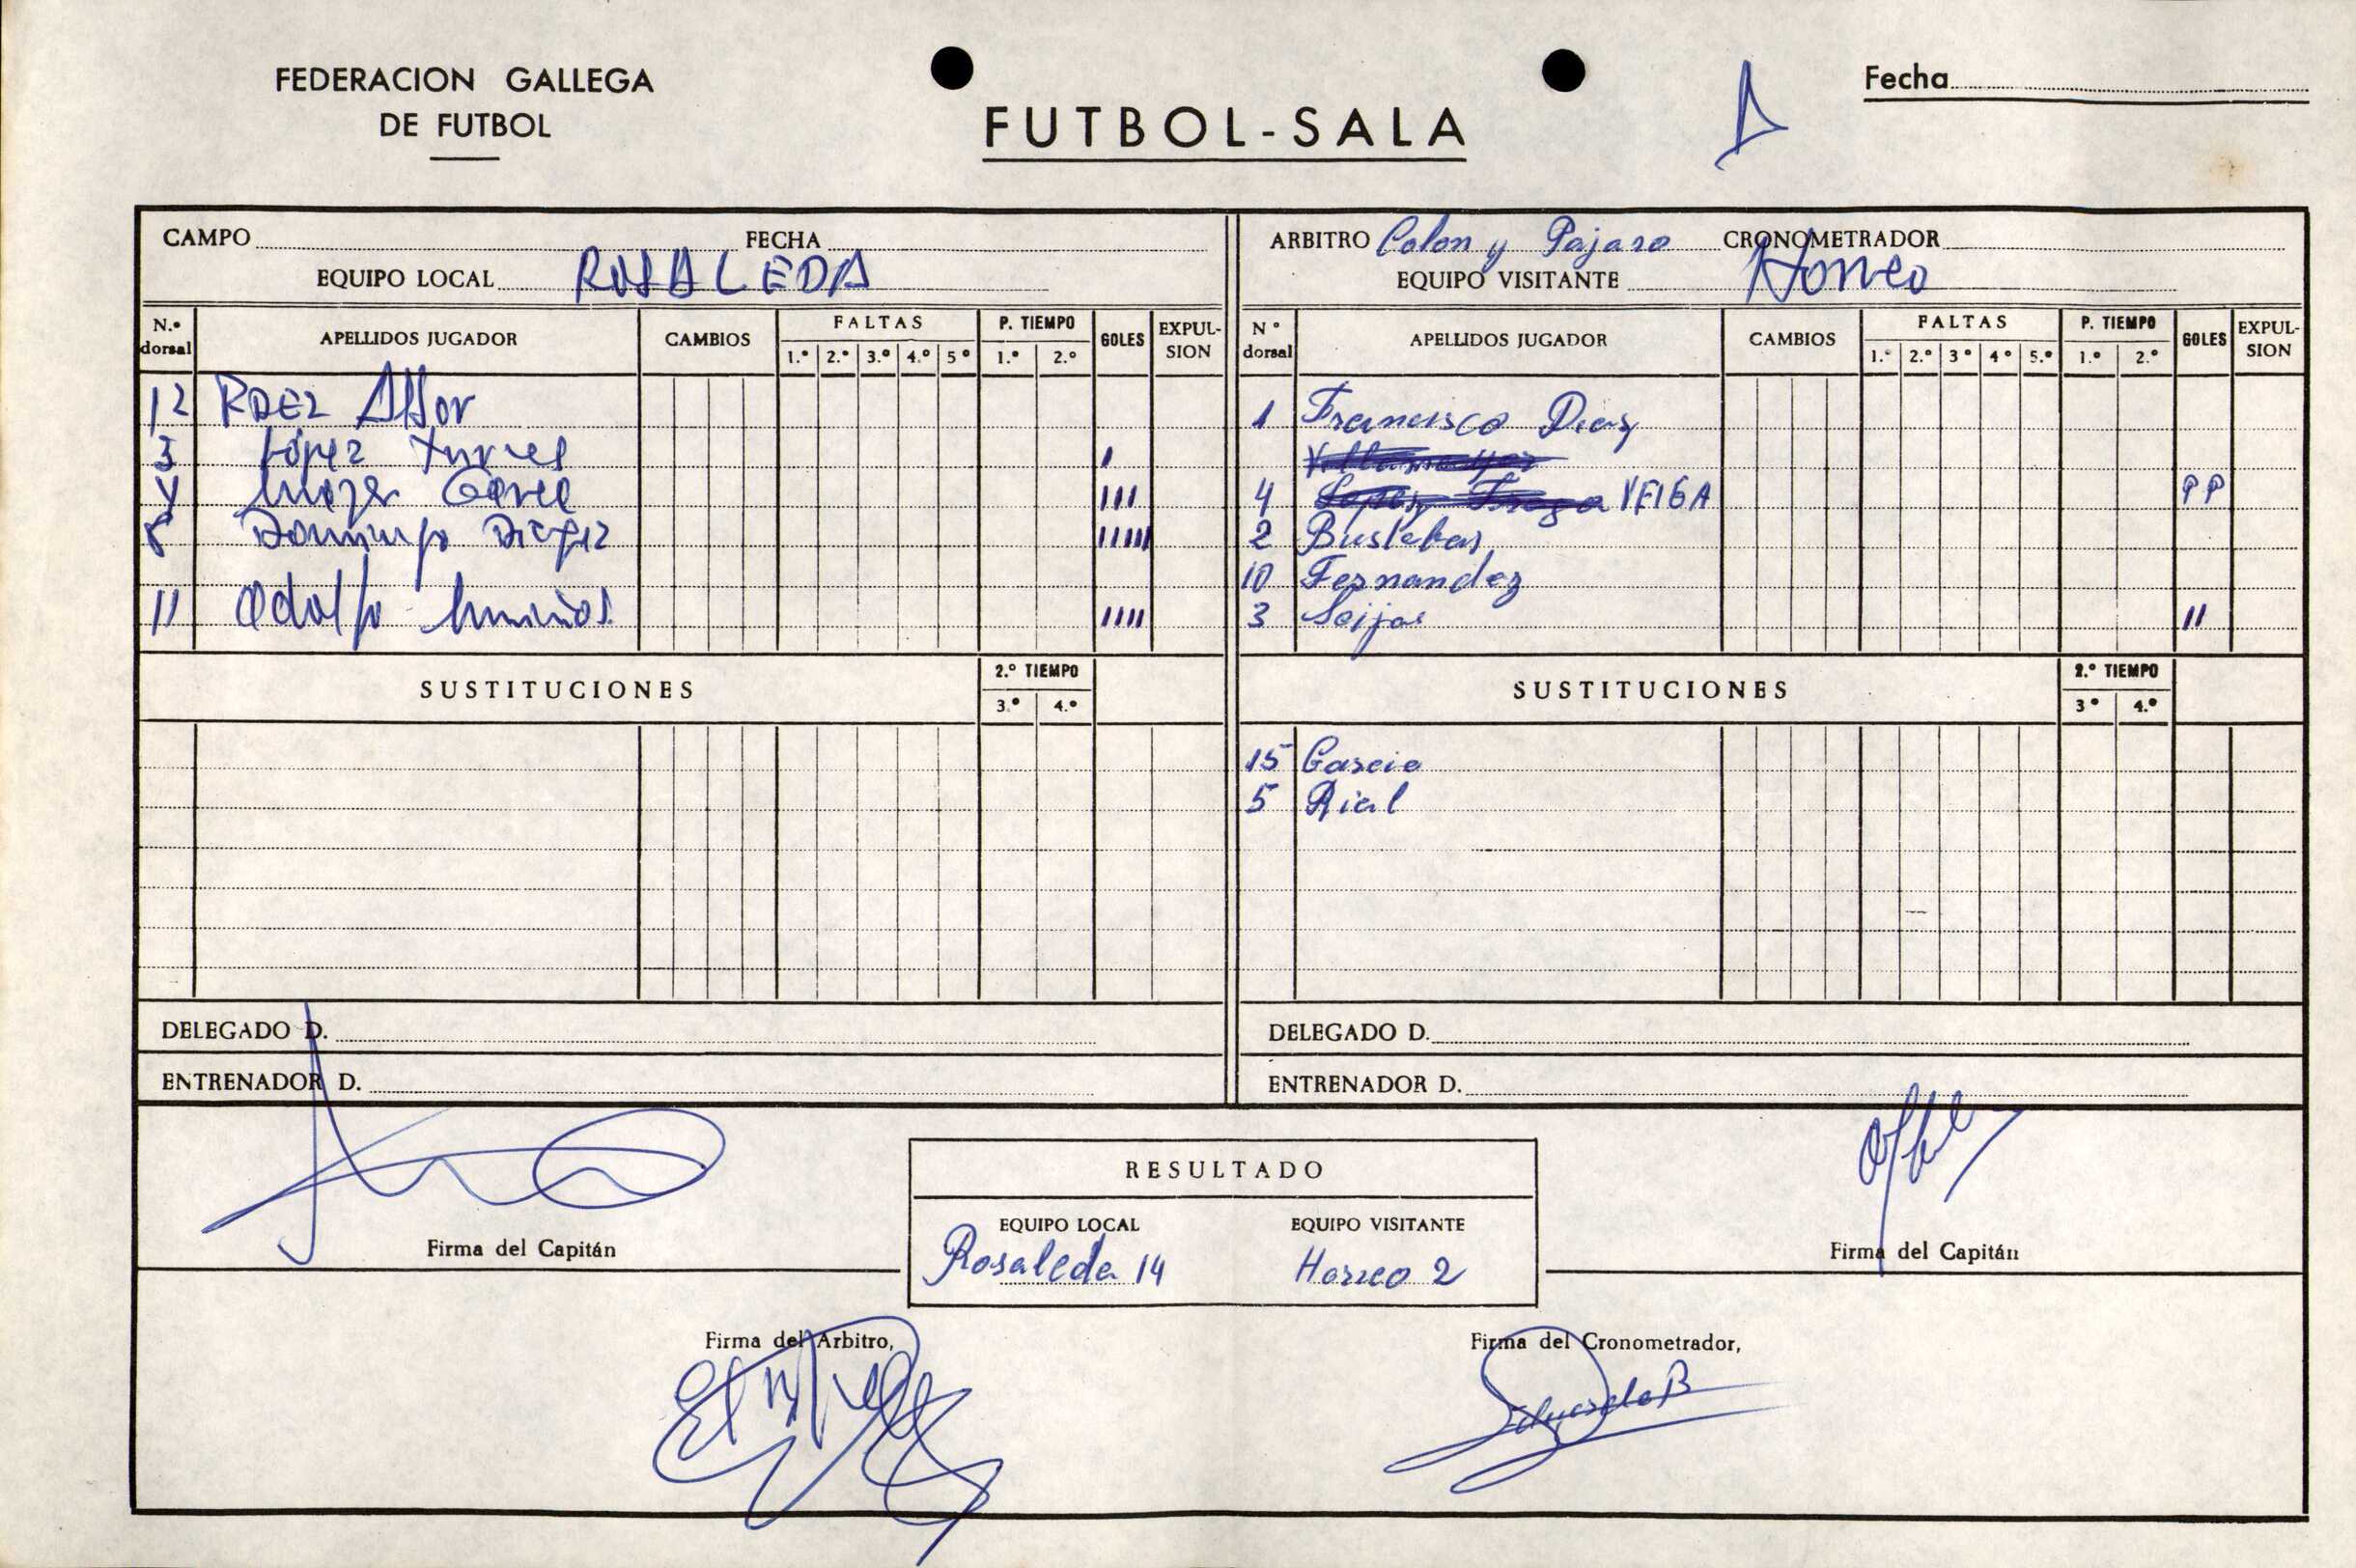 FEDERACION GALLEGA
DE FUTBOL
FUTBOL-SALA
Fecha
CAMPO FECHA
EQUIPO LOCAL ROSALEDA
N.º dorsal APELLIDOS JUGADOR CAMBIOS FALTAS 1.º 2.º 3.º 4.º 5º P. TIEMPO 1.º 2.º GOLES EXPUL-SION
12 RDEZ
3 López Torres I
III
8 Domingo Dieguez IIIII
11 Odolfo IIII
SUSTITUCIONES 2.º TIEMPO 3.º 4.º
DELEGADO D.
ENTRENADOR D.
ARBITRO Colon y Pajaro CRONOMETRADOR
EQUIPO VISITANTE Horreo
Nº dorsal APELLIDOS JUGADOR CAMBIOS FALTAS 1.º 2.º 3º 4º 5.º P. TIEMPO 1.º 2.º GOLES EXPUL-SION
1 Francisco Diaz
4 VEIGA PP
2 Bustelar
10 Fernandez
3 Seijas II
SUSTITUCIONES 2.º TIEMPO 3º 4.º
15 Garcia
5 Rial
DELEGADO D.
ENTRENADOR D.
Firma del Capitán
RESULTADO
EQUIPO LOCAL EQUIPO VISITANTE
Rosaleda 14 Horreo 2
Firma del Capitán
Firma del Arbitro,
Firma del Cronometrador,